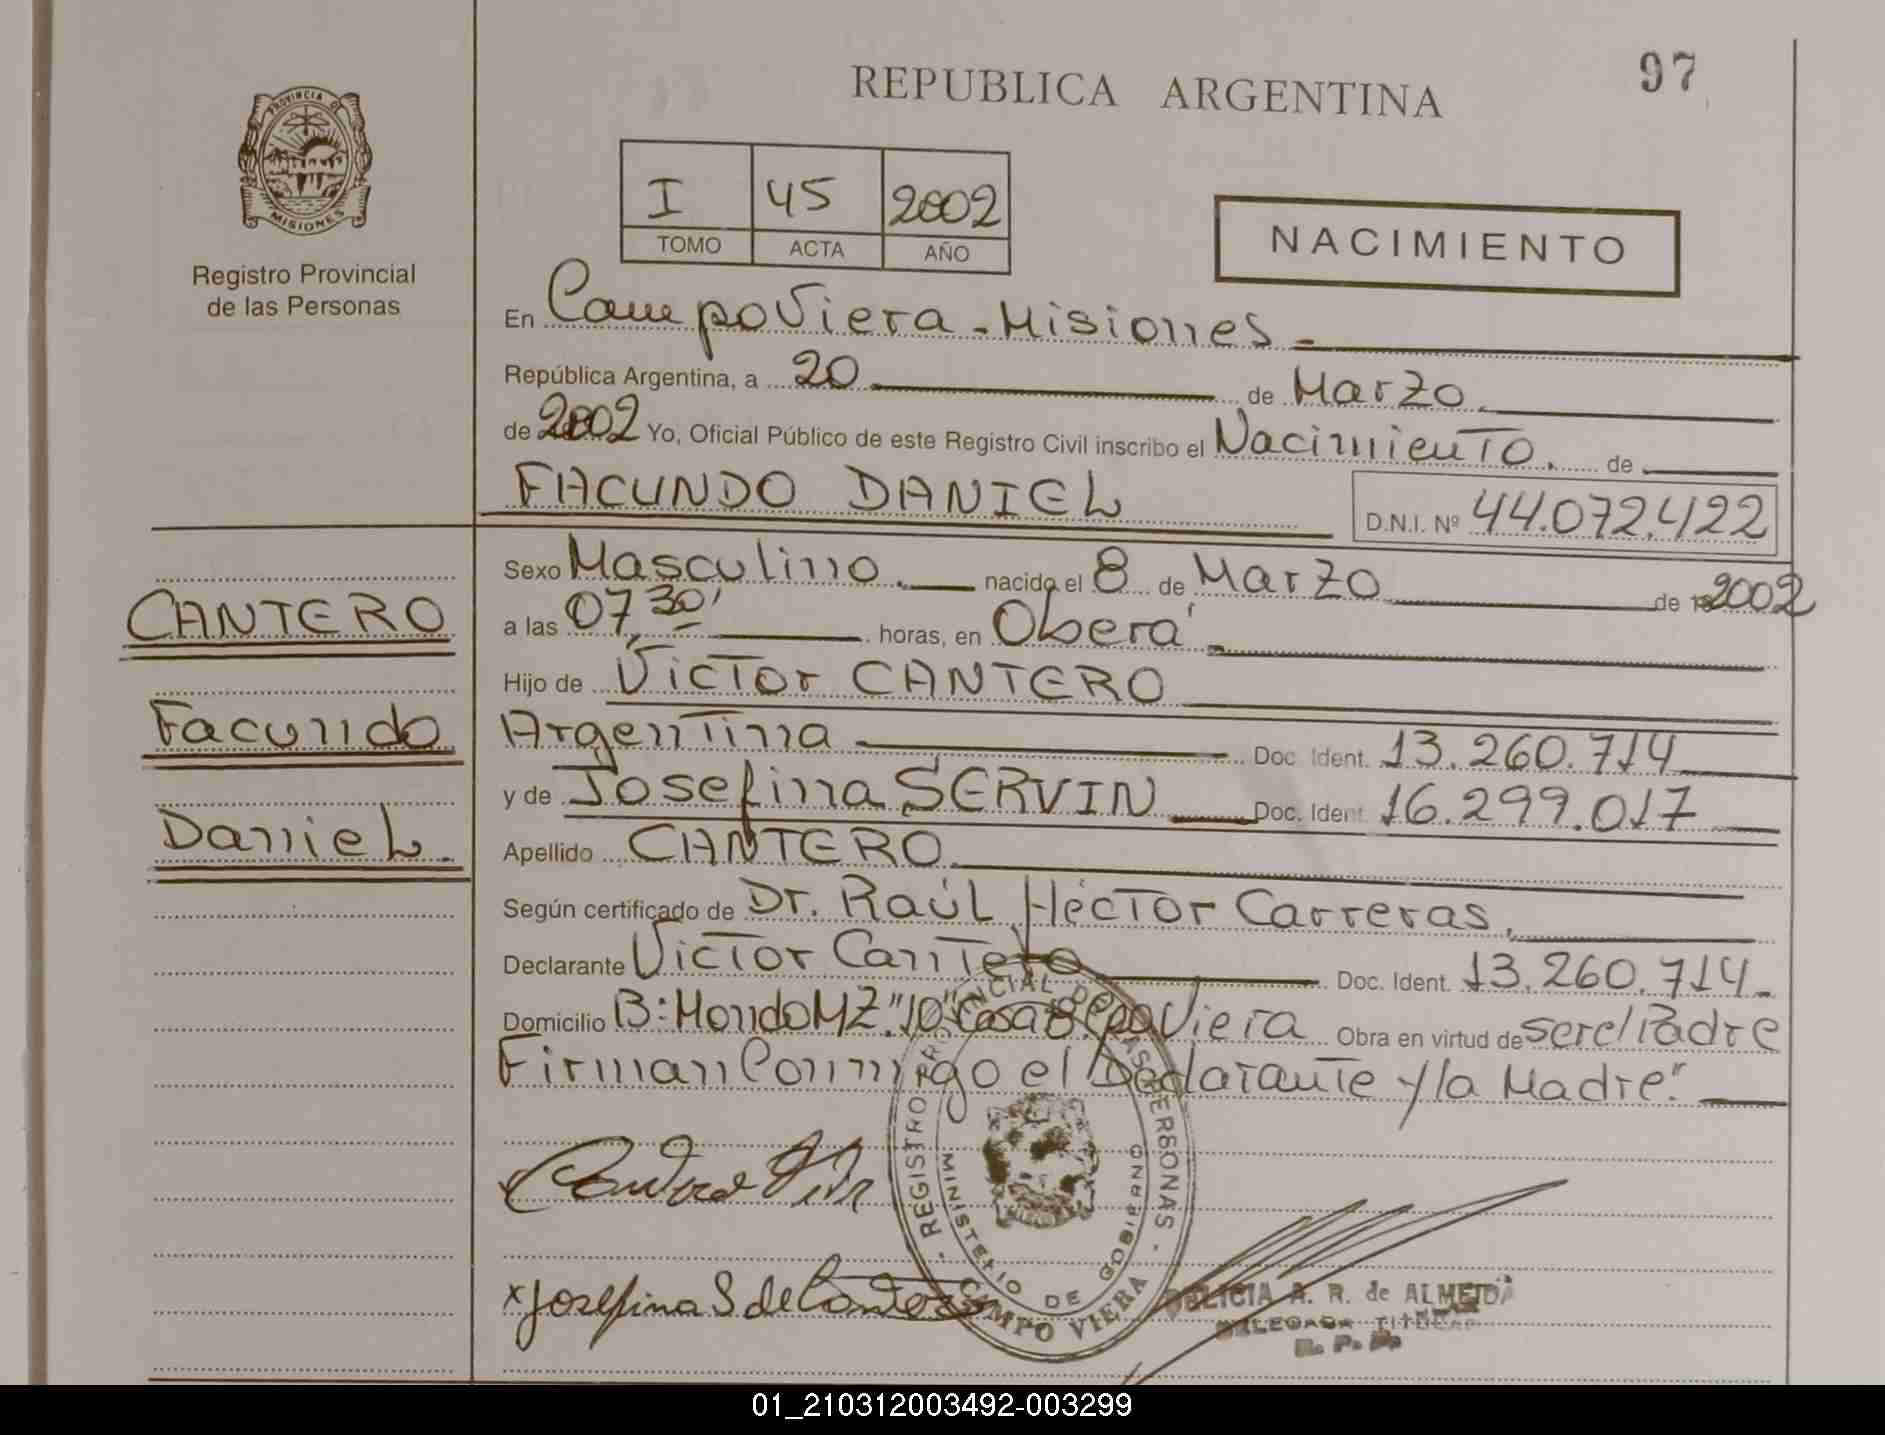 97
REPUBLICA ARGENTINA
PROVINCIA DE
MISIONES
Registro Provincial
de las Personas
I 45 2002
TOMO ACTA AÑO
NACIMIENTO
En Campo Viera - Misiones -
República Argentina, a 20 de Marzo.
de 2002 Yo, Oficial Público de este Registro Civil inscribo el Nacimiento. de
FACUNDO DANIEL
D.N.I. Nº 44.072.422
CANTERO
Facundo
Daniel.
Sexo Masculino. nacido el 8 de Marzo de 2002
a las 07,30' horas, en Oberá
Hijo de Victor CANTERO
Argentina Doc. Ident. 13.260.714
y de Josefina SERVIN Doc. Ident. 16.299.017
Apellido CANTERO
Según certificado de Dr. Raúl Héctor Carreras,
Declarante Victor Cantero Doc. Ident. 13.260.714.
Domicilio B: Hondo MZ "10" Casa 8 Cpo Viera Obra en virtud de ser el Padre
Firman Conmigo el Declarante y la Madre"
REGISTRO PROVINCIAL DE LAS PERSONAS
MINISTERIO DE GOBIERNO
CAMPO VIERA
x Josefina S de Cantero
A. R. de ALMEIDA
DELEGADA TITULAR
R. P. P.
01_210312003492-003299